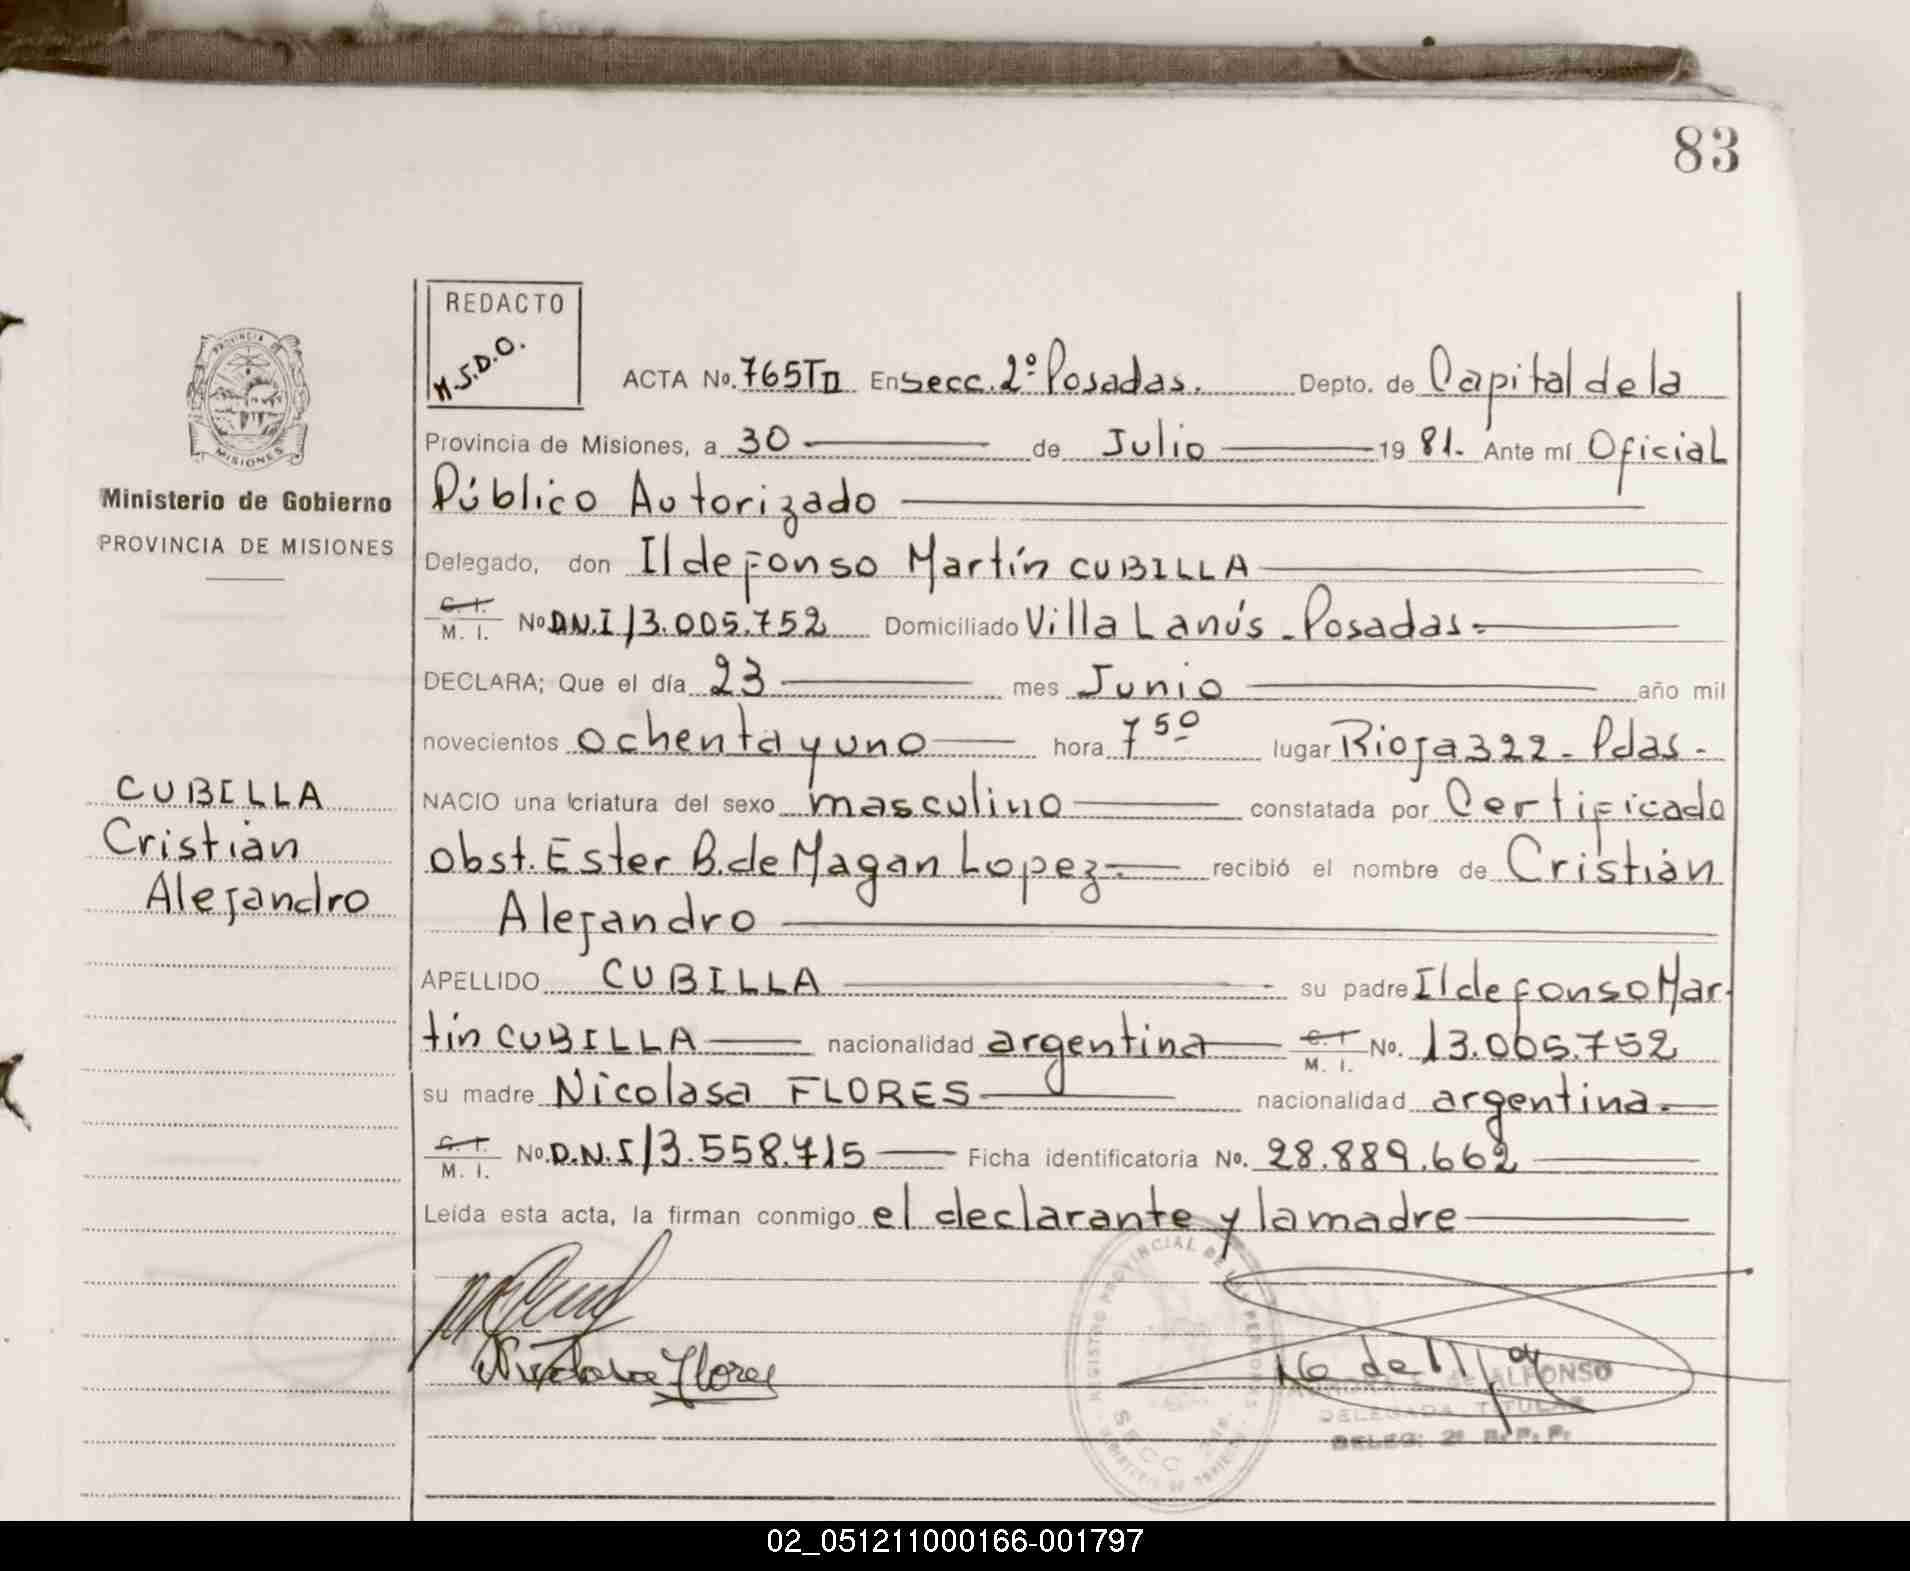 83
REDACTO
M.S.D.O.
PROVINCIA DE
MISIONES
Ministerio de Gobierno
PROVINCIA DE MISIONES
CUBILLA
Cristián
Alejandro
ACTA No. 765TII En Secc. 2º Posadas. Depto. de Capital de la
Provincia de Misiones, a 30 de Julio 19 81. Ante mí Oficial
Público Autorizado
Delegado, don Ildefonso Martín CUBILLA
C. I. / M. I. No D.N.I 13.005.752 Domiciliado Villa Lanús - Posadas.
DECLARA; Que el día 23 mes Junio año mil
novecientos ochenta y uno hora 7 50 lugar Rioja 322 - Pdas -
NACIO una criatura del sexo masculino constatada por Certificado
obst. Ester B. de Magan Lopez.- recibió el nombre de Cristián
Alejandro
APELLIDO CUBILLA su padre Ildefonso Mar-
tín CUBILLA nacionalidad argentina C. I / M. I. No. 13.005.752
su madre Nicolasa FLORES nacionalidad argentina.
C. I. / M. I. No. D.N.I 13.558.715 Ficha identificatoria No. 28.889.662
Leída esta acta, la firman conmigo el declarante y la madre
Nicolasa Flores
REGISTRO PROVINCIAL DE LAS PERSONAS
SECC
de ALFONSO
DELEGADA TITULAR
DELEG: 2ª R. P. P.
02_051211000166-001797